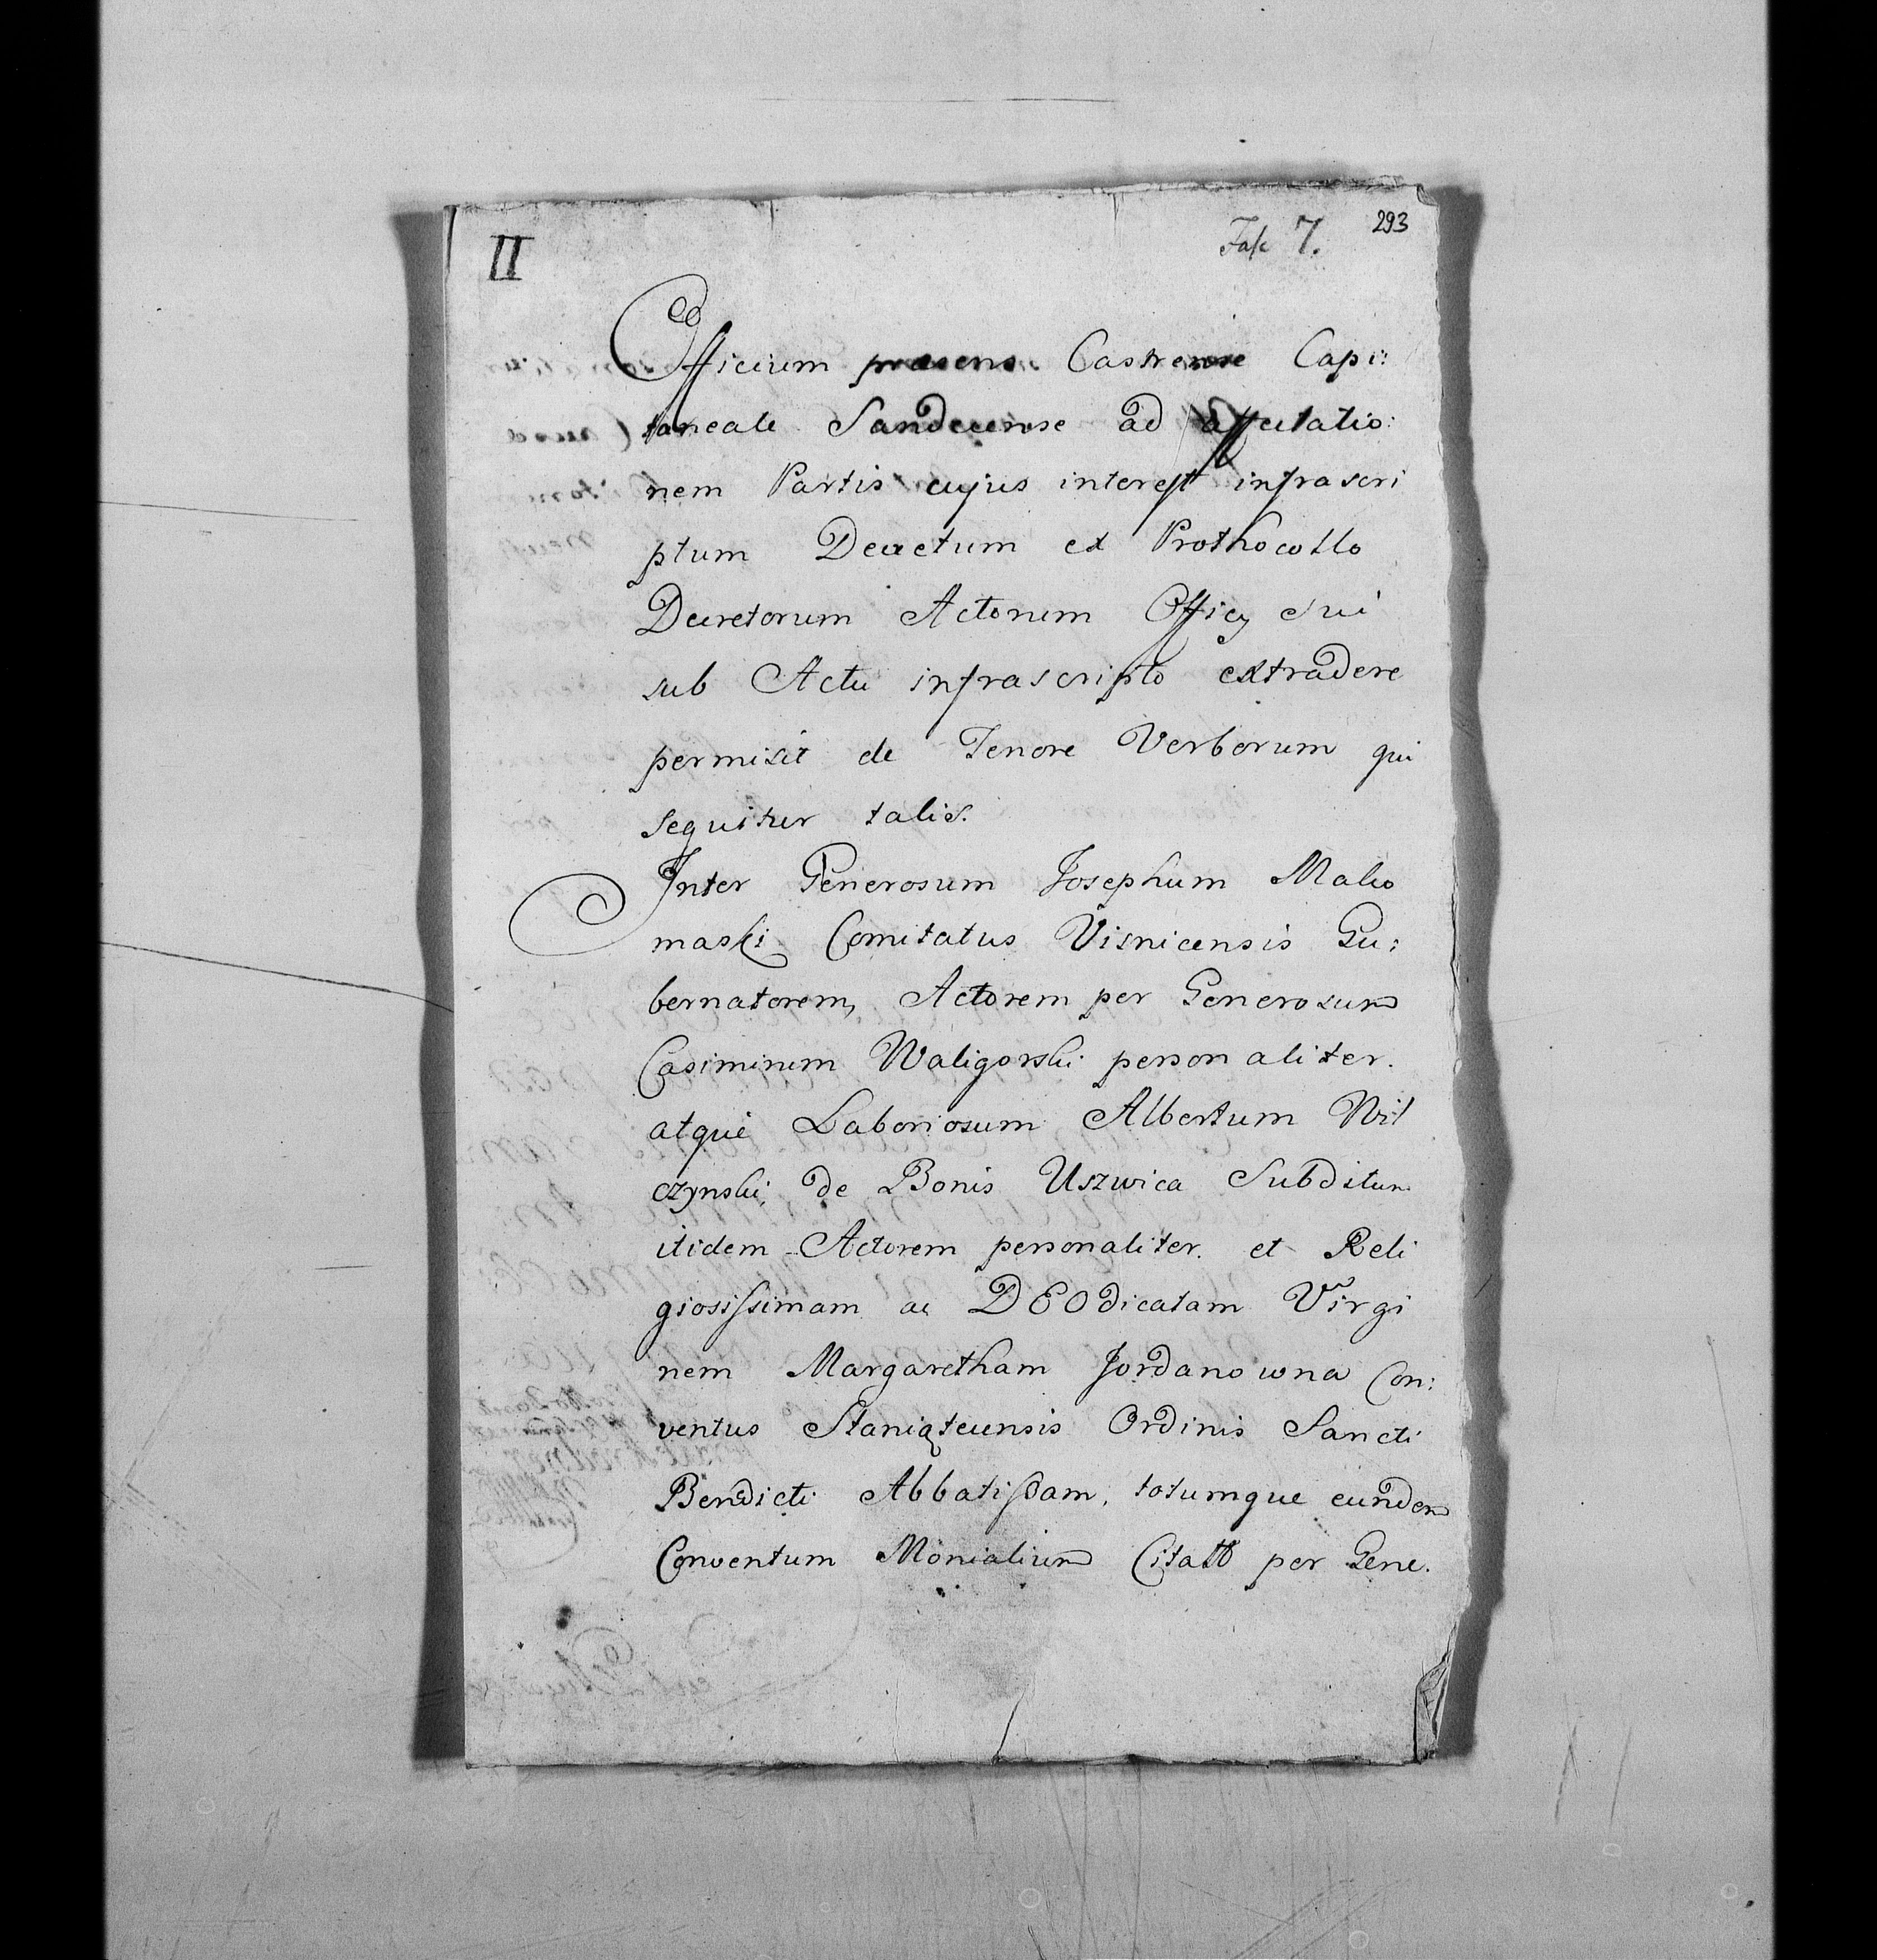 II
Fasc 7.
293
Officium præsens Castrense Capi:
taneale Sandecense ad affectatio:
nem Partis cujus interest infrascri
ptum Decretum ex Prothocollo
Decretorum Actorum Officÿ sui
sub Actu infrascripto extradere
permisit de Tenore Verborum qui
sequitur talis.
Inter Generosum Josephum Malio
maski Comitatus Visnicensis Gu:
bernatorem, Actorem per Generosum
Casimirum Waligorski personaliter.
atque Laboriosum Albertum Wil
czynski, de Bonis Uszwica Subditum
itidem Actorem personaliter. et Reli
giosissimam ac DEO dicatam Virgi
nem Margaretham Jordanowna Con:
ventus Staniątecensis Ordinis Sancti
Benedicti Abbatissam, totumque eundem
Conventum Monialium Citatt per Gene.